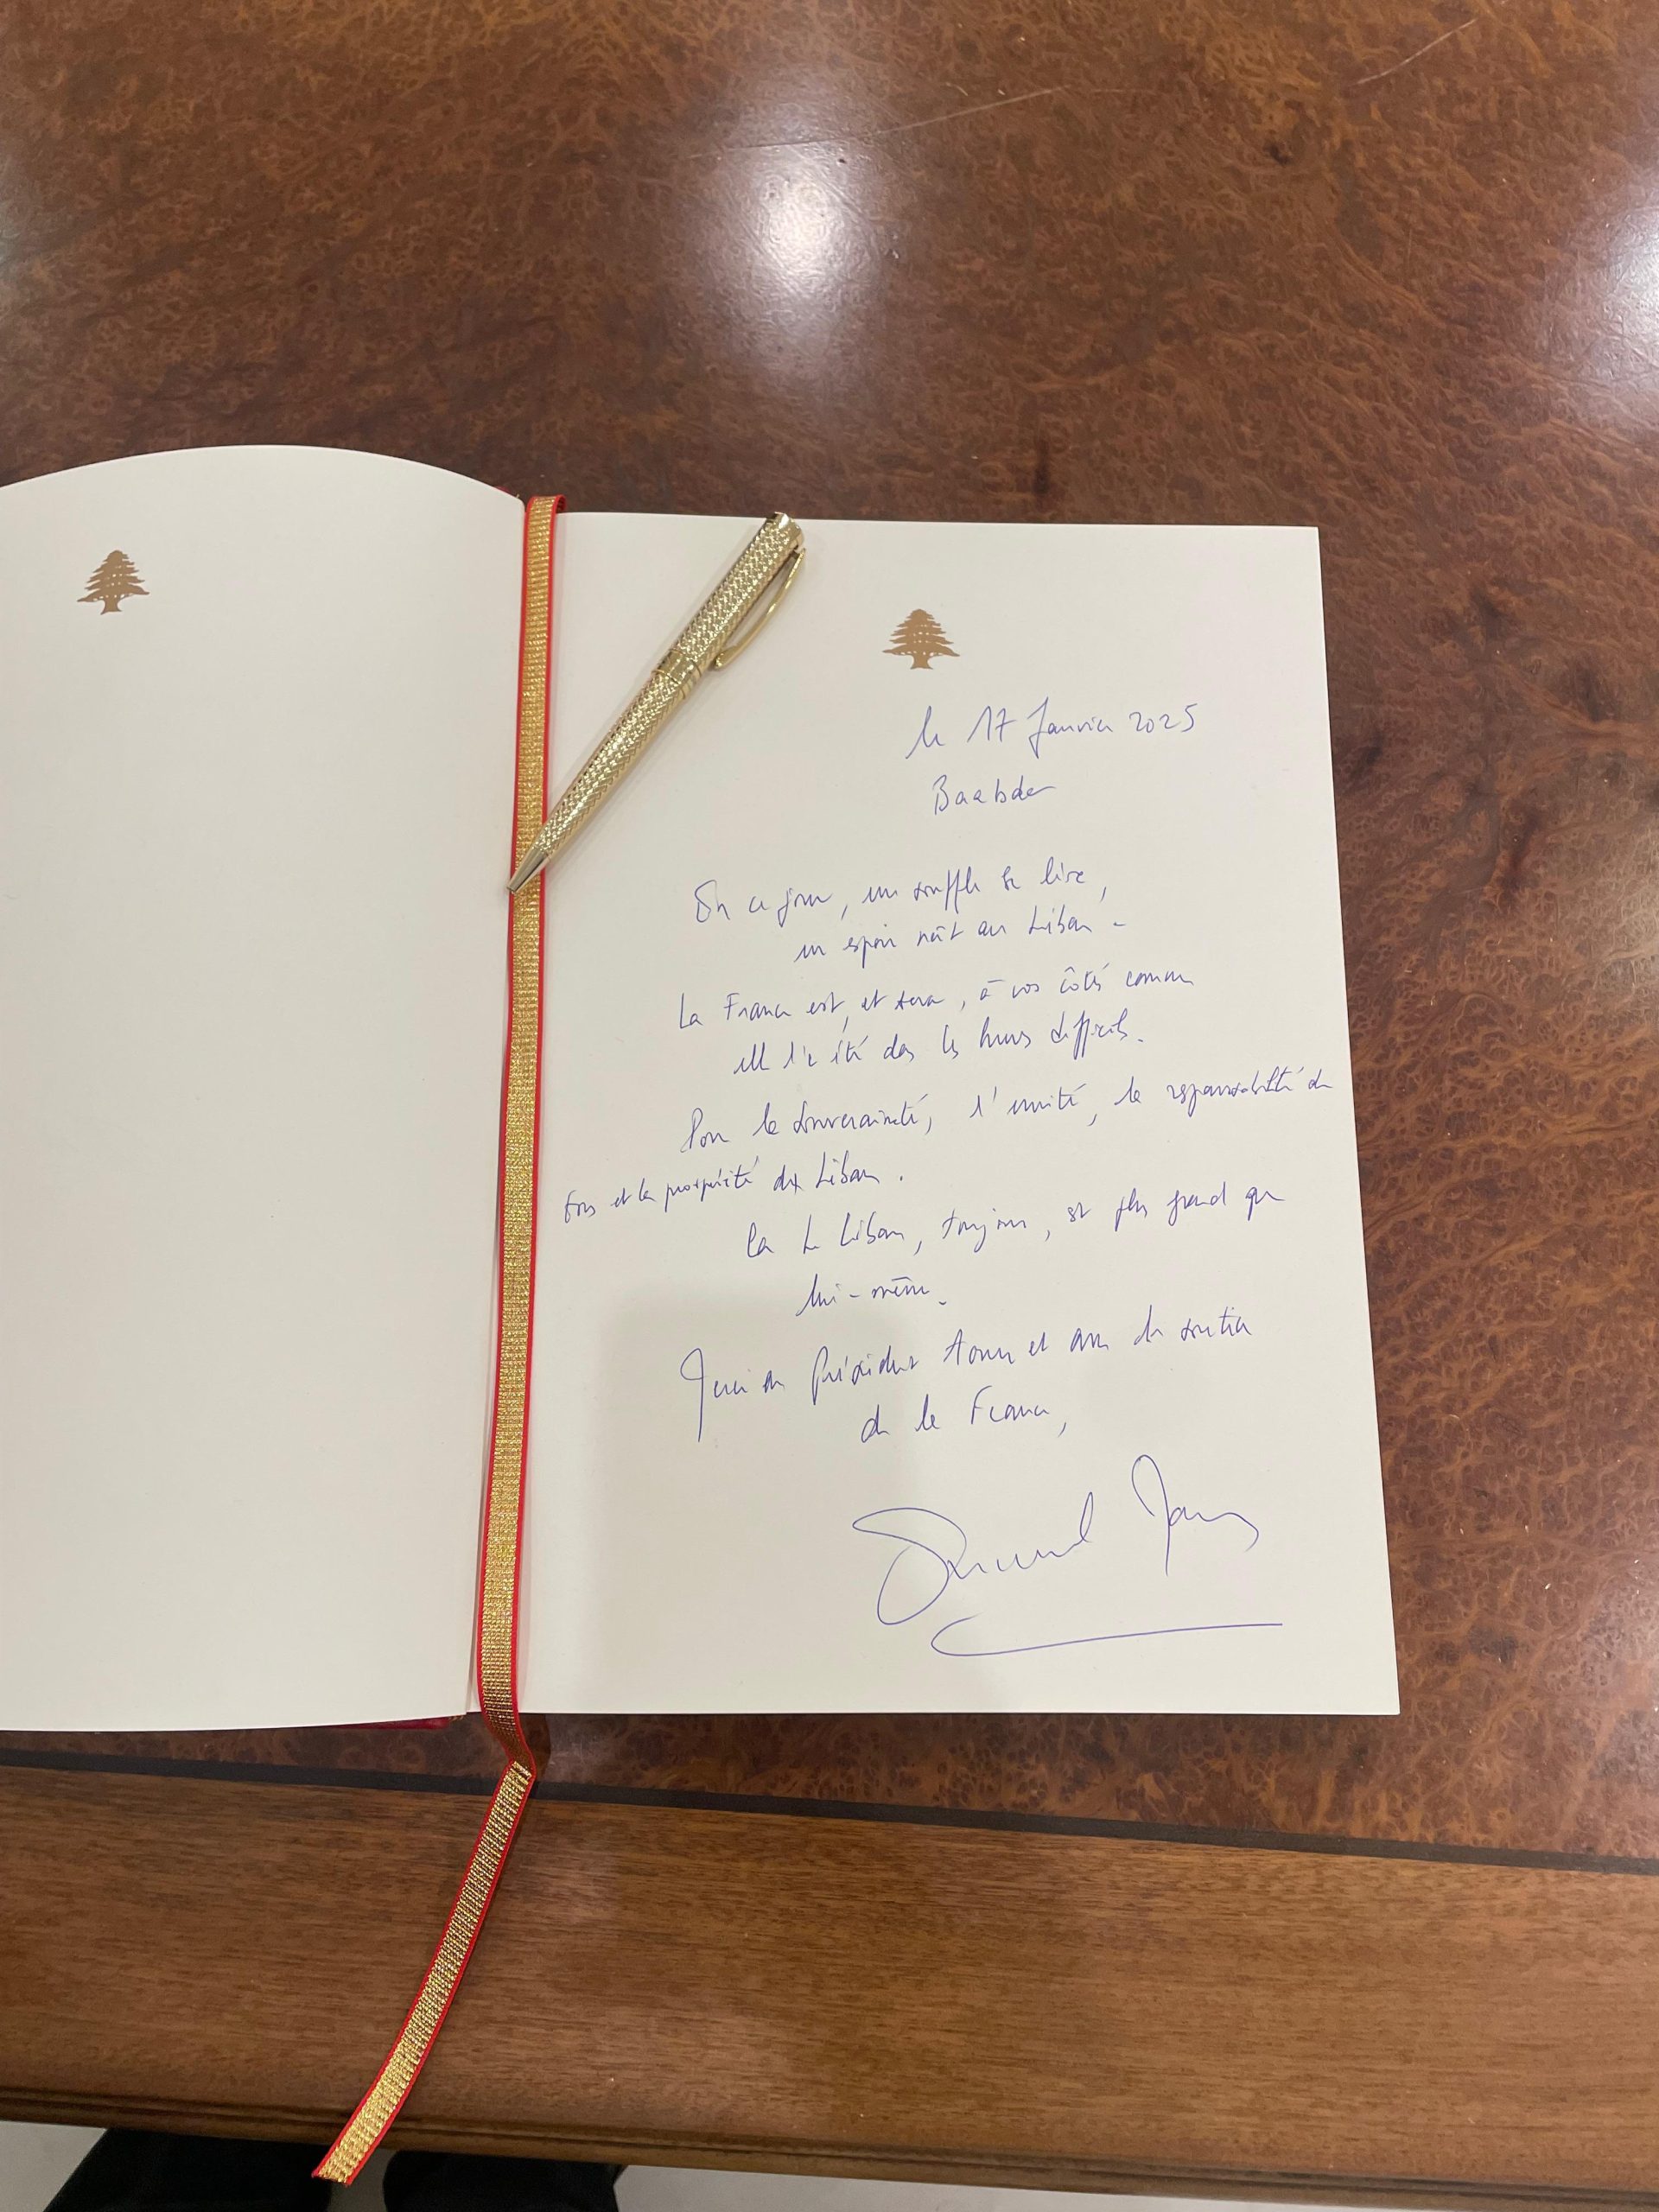 le 17 Janvier 2025
Baabda
En ce jour, un souffle se lève,
un espoir naît au Liban -
La France est, et sera, à vos côtés comme
elle l'a été dans les heures difficiles.
Pour la souveraineté, l'unité, la responsabilité de
tous et la prospérité du Liban.
Car le Liban, toujours, est plus grand que
lui-même.
Merci au Président Aoun et avec le soutien
de la France,
Emmanuel Macron